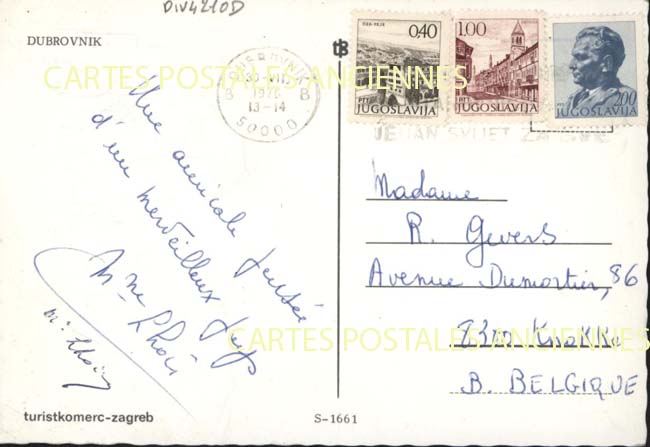 DIV4210D
DUBROVNIK
CARTES POSTALES ANCIENNES
DUBROVNIK
1976
13-14
B B
50000
0,40
PTT JUGOSLAVIJA
1.00
PTT JUGOSLAVIJA
2,00
JUGOSLAVIJA
JEDAN SVIJET
Une amicale pensée
d'un merveilleux pays
Mme
Madame
R. Gevers
Avenue Dumortier, 86
8300 Knokke
B. BELGIQUE
CARTES POSTALES ANCIENNES
turistkomerc-zagreb
S-1661